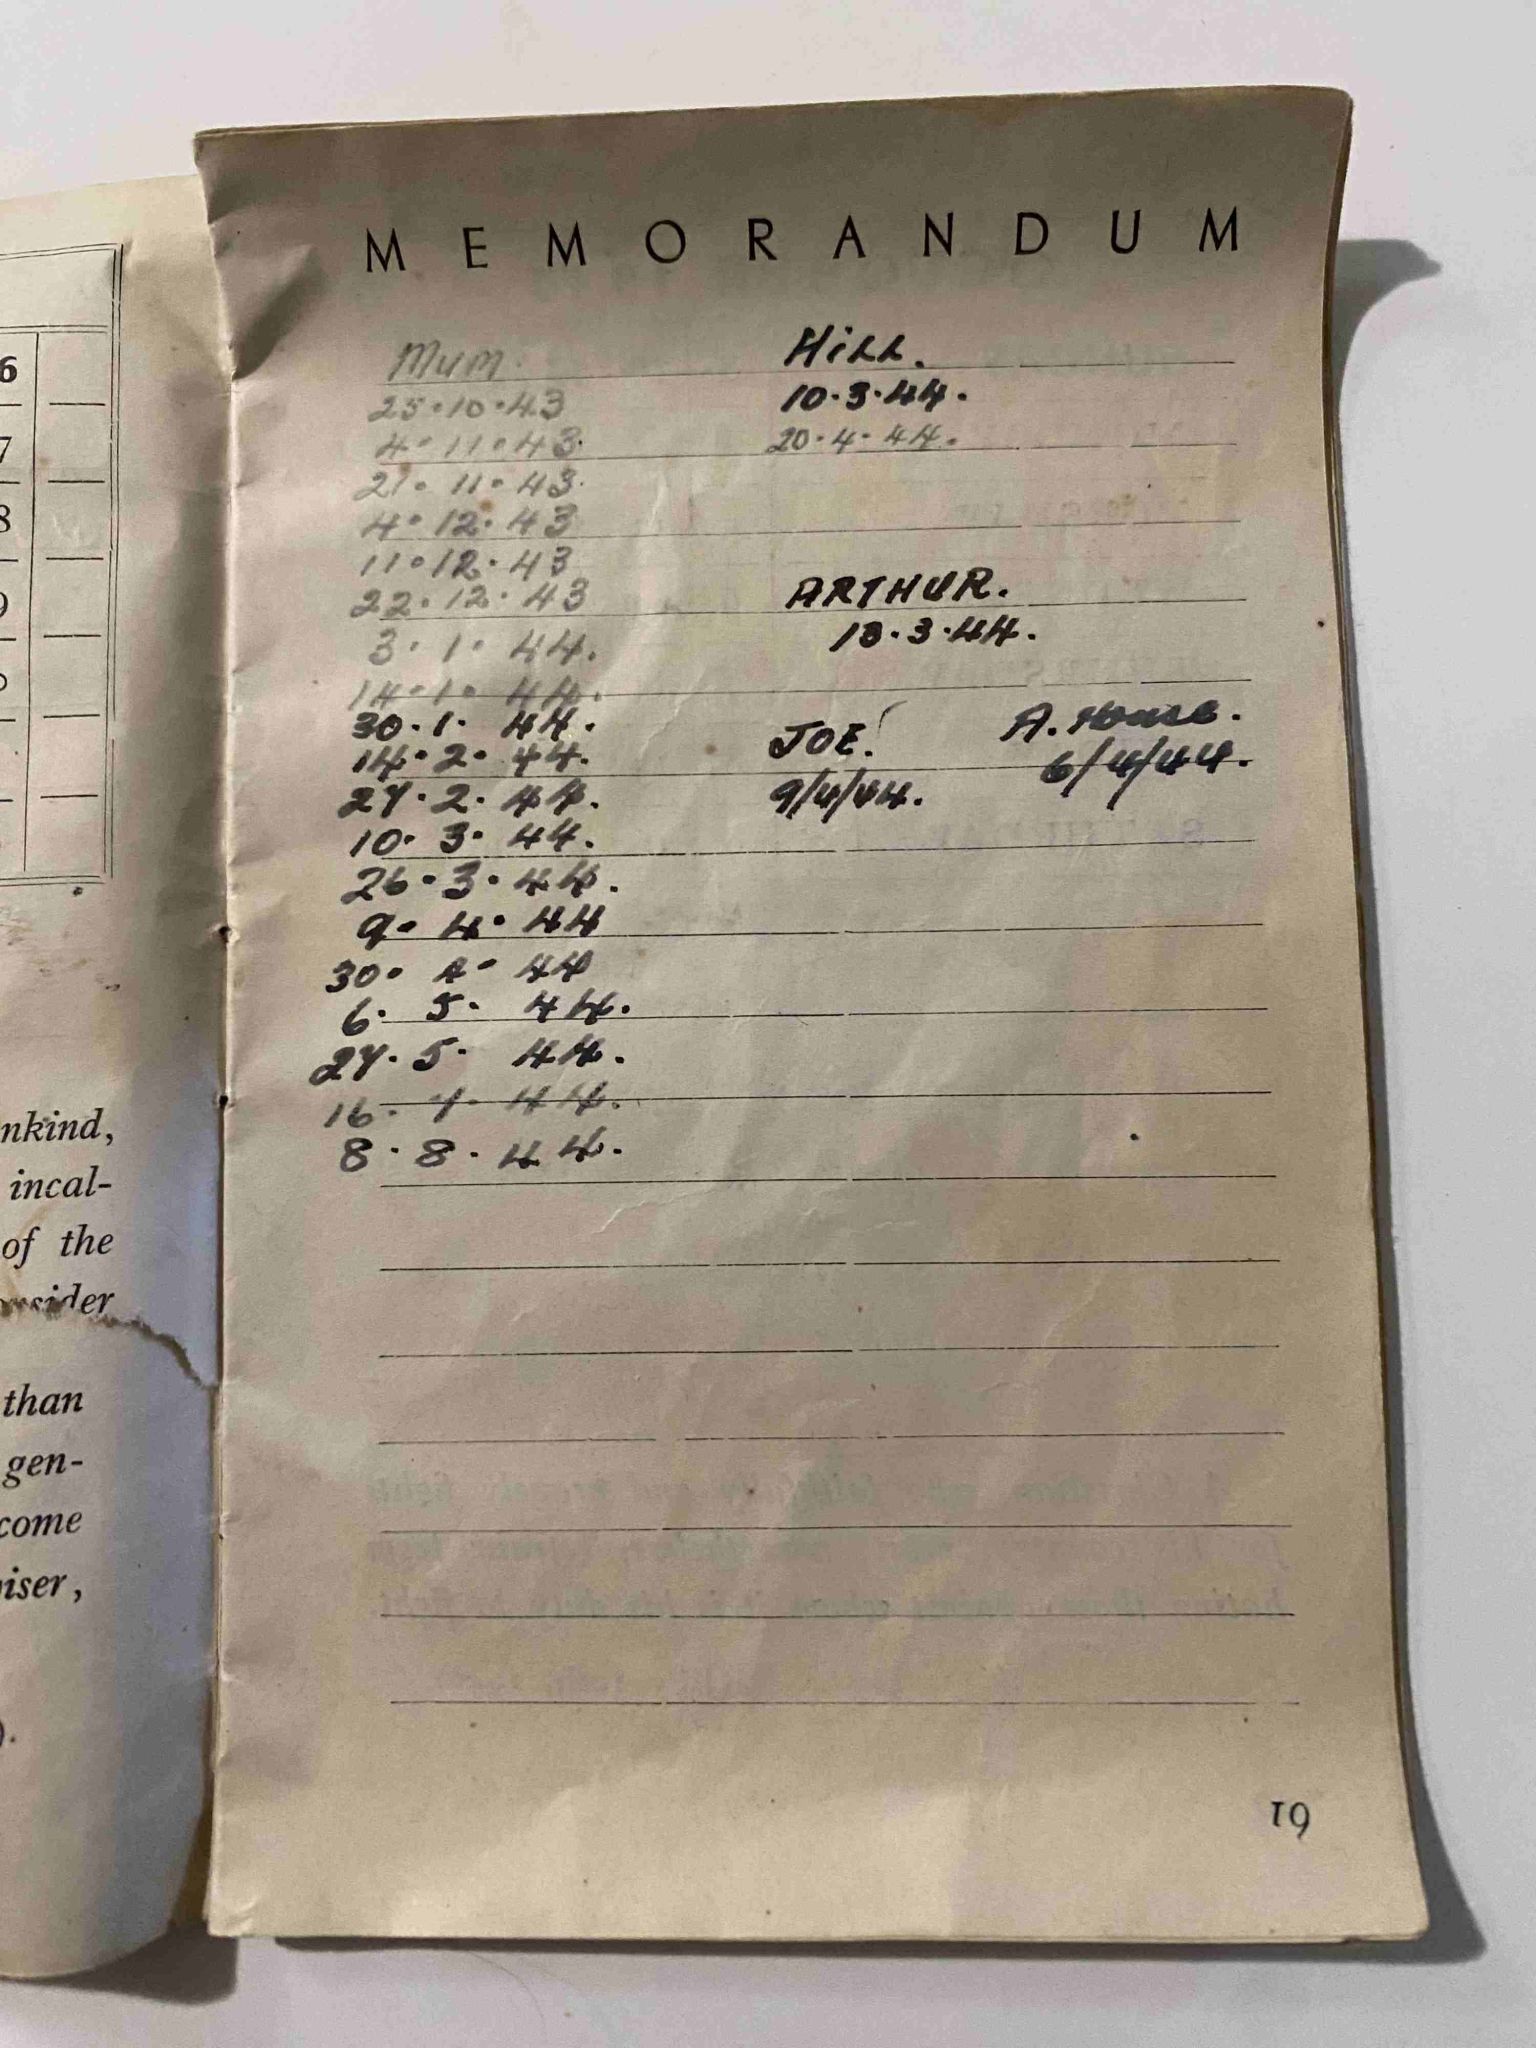 6
7
8
9
nkind,
incal-
of the
onsider
than
gen-
come
iser,
MEMORANDUM
Mum.
25.10.43
4.11.43.
21.11.43.
4.12.43
11.12.43
22.12.43
3.1.44.
14.1.44.
30.1.44.
14.2.44.
27.2.44.
10.3.44.
26.3.44.
9.4.44
30.4.44
6.5.44.
27.5.44.
16.7.44.
8.8.44.
HiLL.
10.3.44.
20.4.44.
ARTHUR.
18.3.44.
JOE.
9/4/44.
A. House.
6/4/44.
61